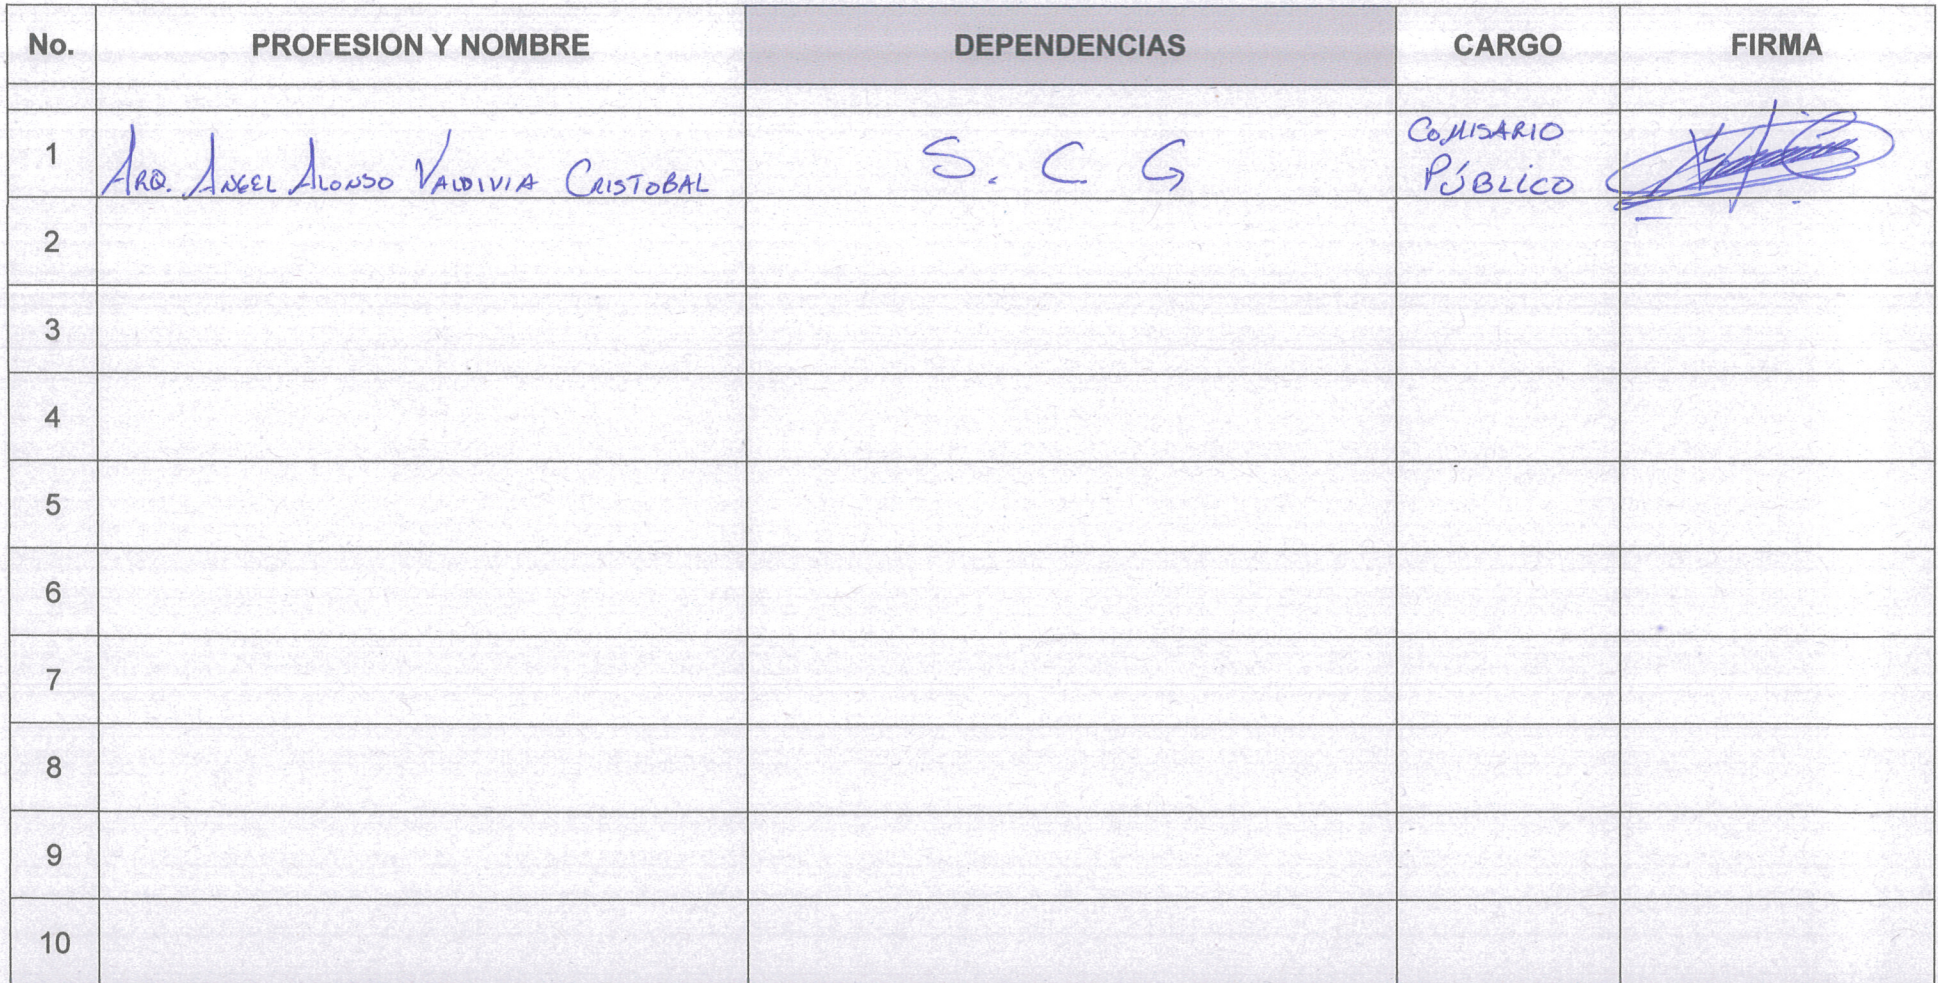 No. PROFESION Y NOMBRE DEPENDENCIAS CARGO FIRMA
1 ARQ. ANGEL ALONSO VALDIVIA CRISTOBAL S. C. G COMISARIO
PÚBLICO
2
3
4
5
6
7
8
9
10